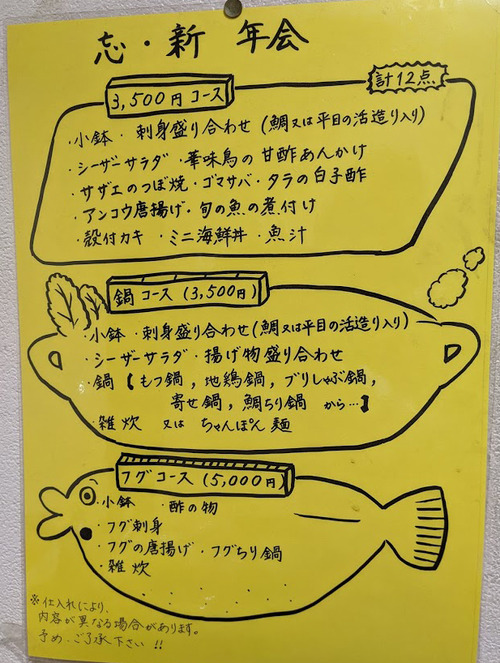 忘・新 年会
計12点
3,500円コース
・小鉢・刺身盛り合わせ(鯛又は平目の活造り入り)
・シーザーサラダ・華味鳥の甘酢あんかけ
・サザエのつぼ焼・ゴマサバ・タラの白子酢
・アンコウ唐揚げ・旬の魚の煮付け
・殻付カキ・ミニ海鮮丼・魚汁
鍋コース(3,500円)
・小鉢・刺身盛り合わせ(鯛又は平目の活造り入り)
・シーザーサラダ・揚げ物盛り合わせ
・鍋【もつ鍋,地鶏鍋,ブリしゃぶ鍋,
寄せ鍋,鯛ちり鍋 から…】
・雑炊 又は ちゃんぽん麺
フグコース(5,000円)
・小鉢 ・酢の物
・フグ刺身
・フグの唐揚げ・フグちり鍋
・雑炊
※仕入れにより、
内容が異なる場合があります。
予め、ご了承下さい!!